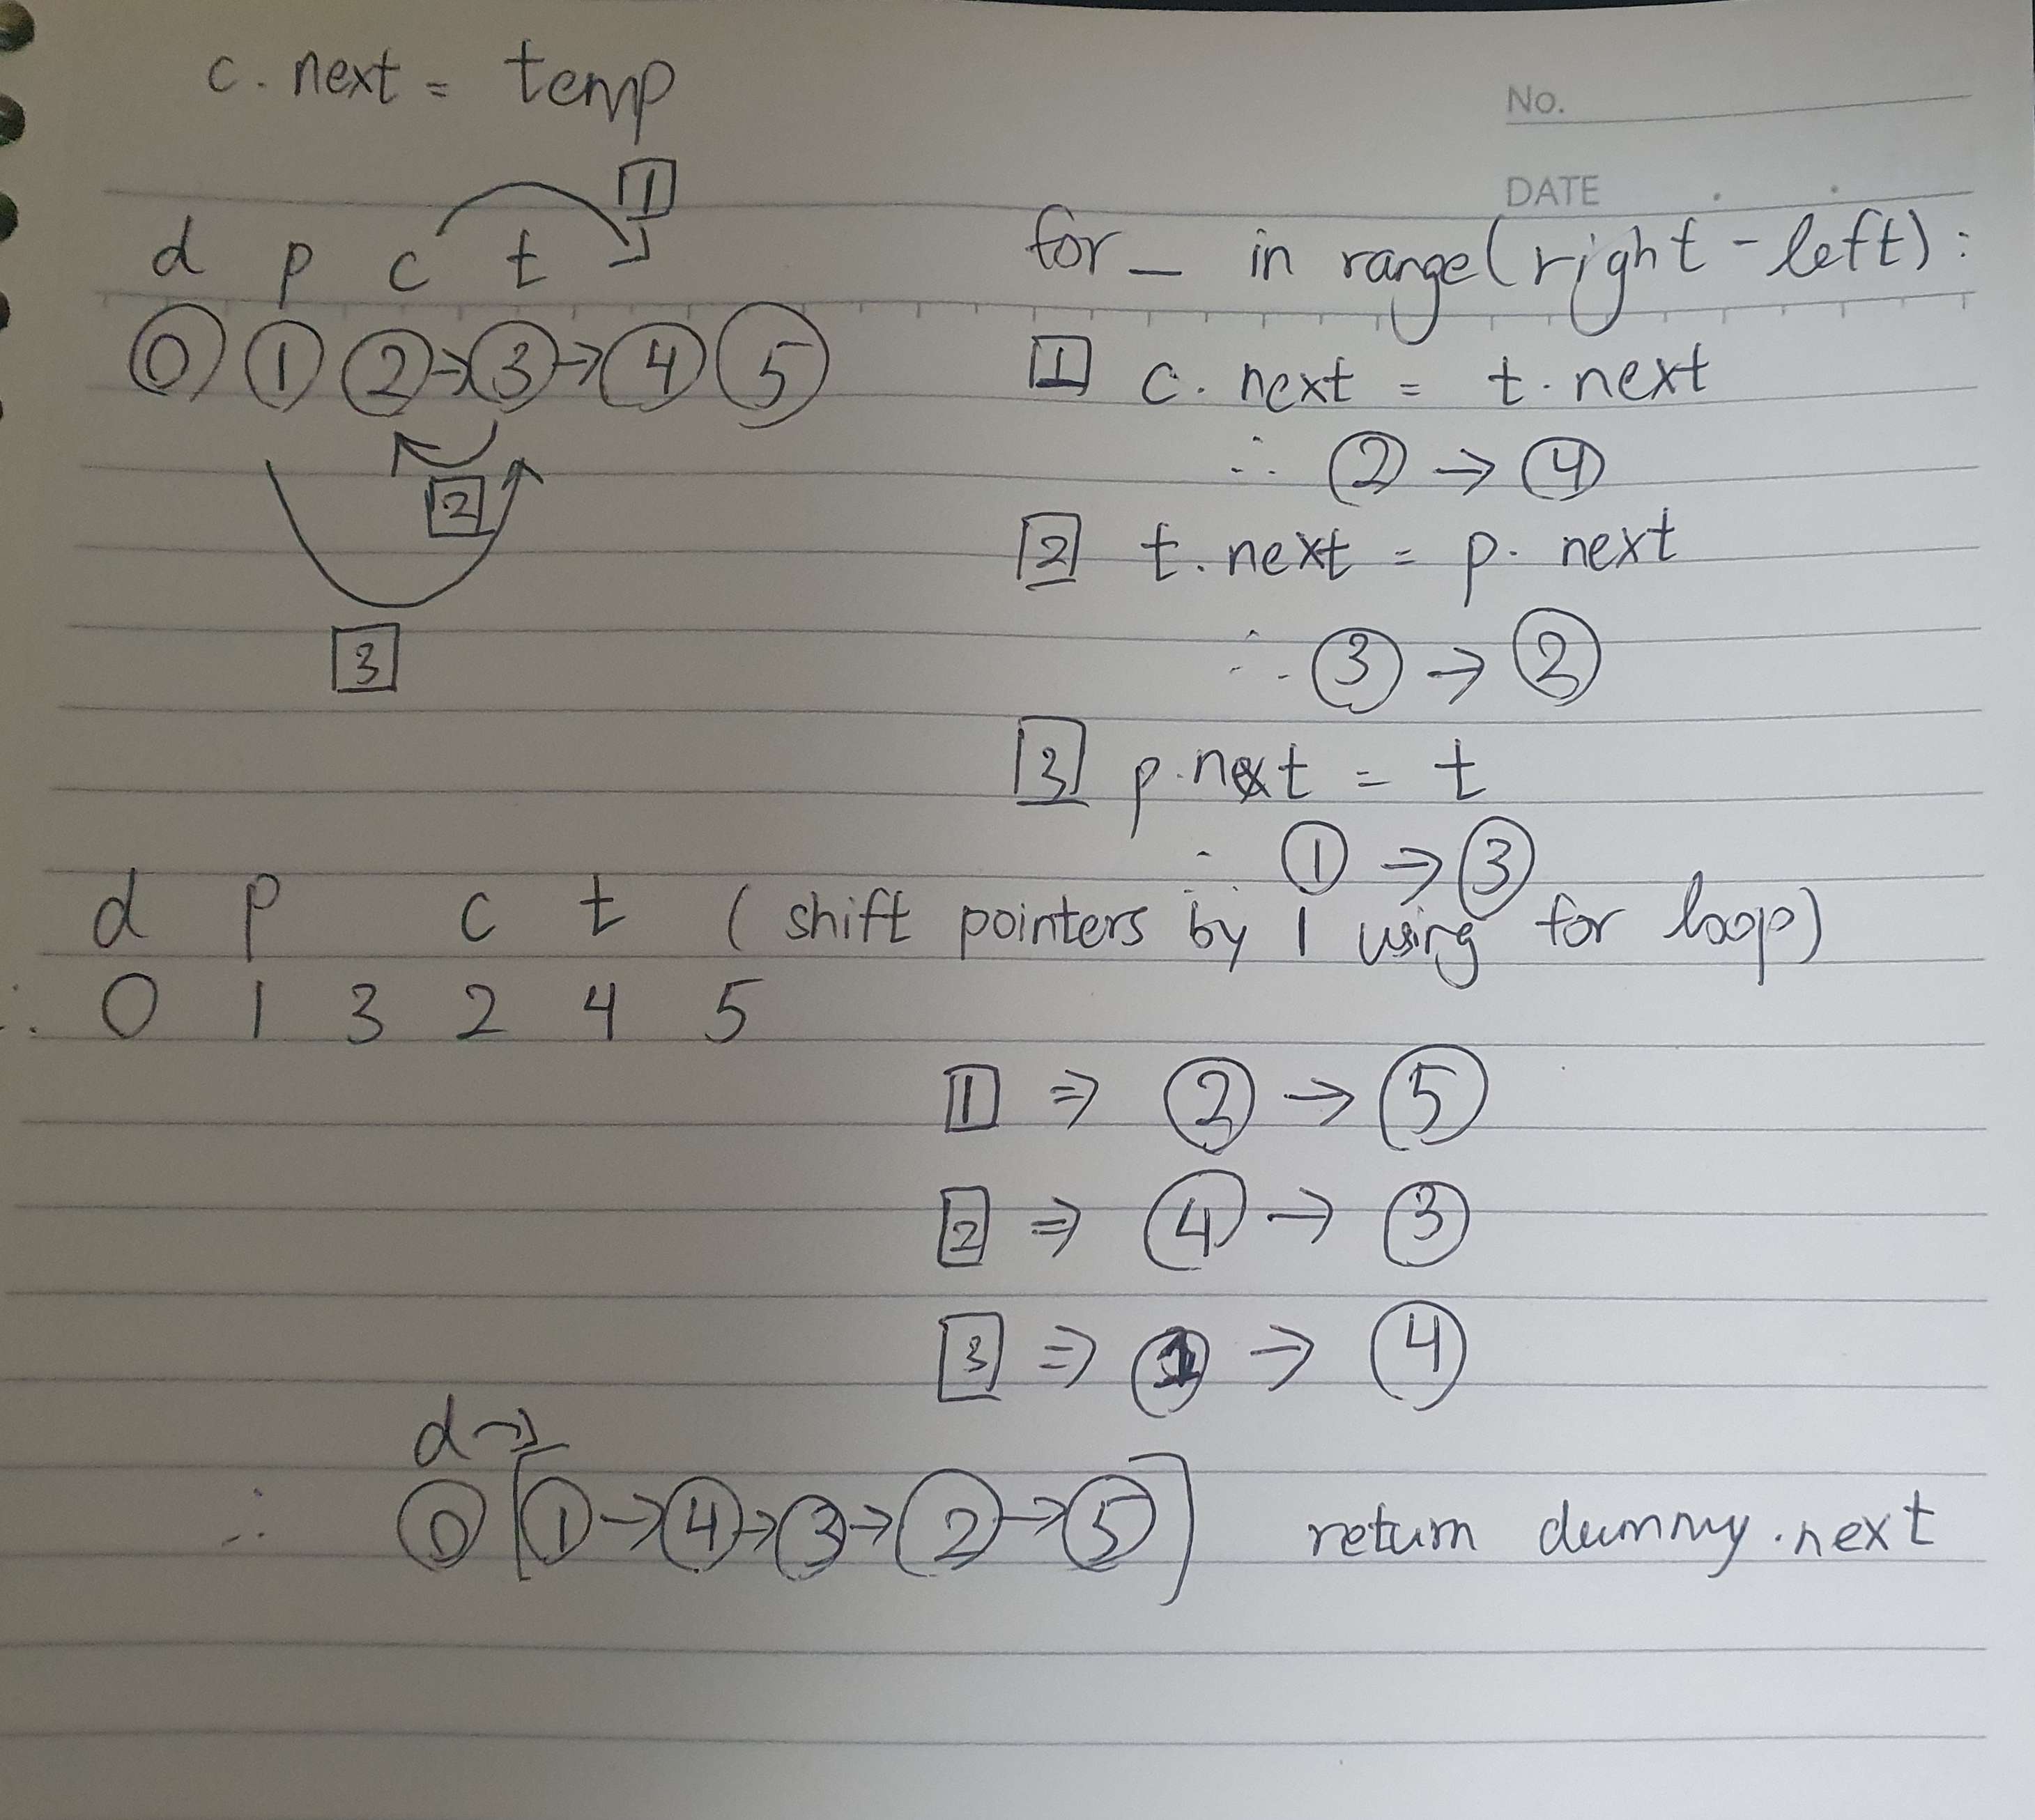 c. next = temp
No.
DATE
1
d p c t
0 1 2 → 3 → 4 5
2
3
for _ in range(right - left):
1 c. next = t. next
∴ 2 → 4
2 t. next = p. next
∴ 3 → 2
3 p.next = t
∴ 1 → 3
d p c t (shift pointers by 1 using for loop)
∴ 0 1 3 2 4 5
1 ⇒ 2 → 5
2 ⇒ 4 → 3
3 ⇒ 1 → 4
d →
∴ 0 [1 → 4 → 3 → 2 → 5] return dummy.next